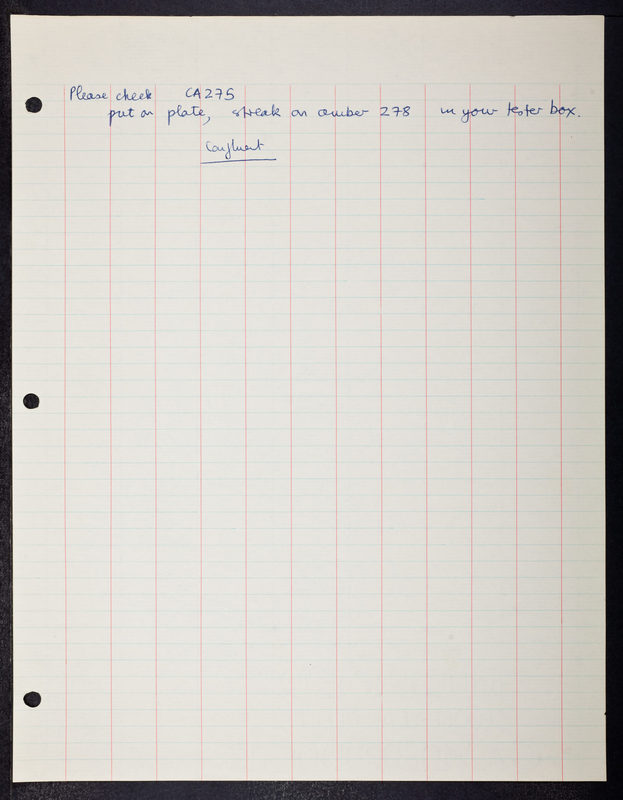 Please check CA275
put on plate, streak on amber 278 in your tester box.
Confluent